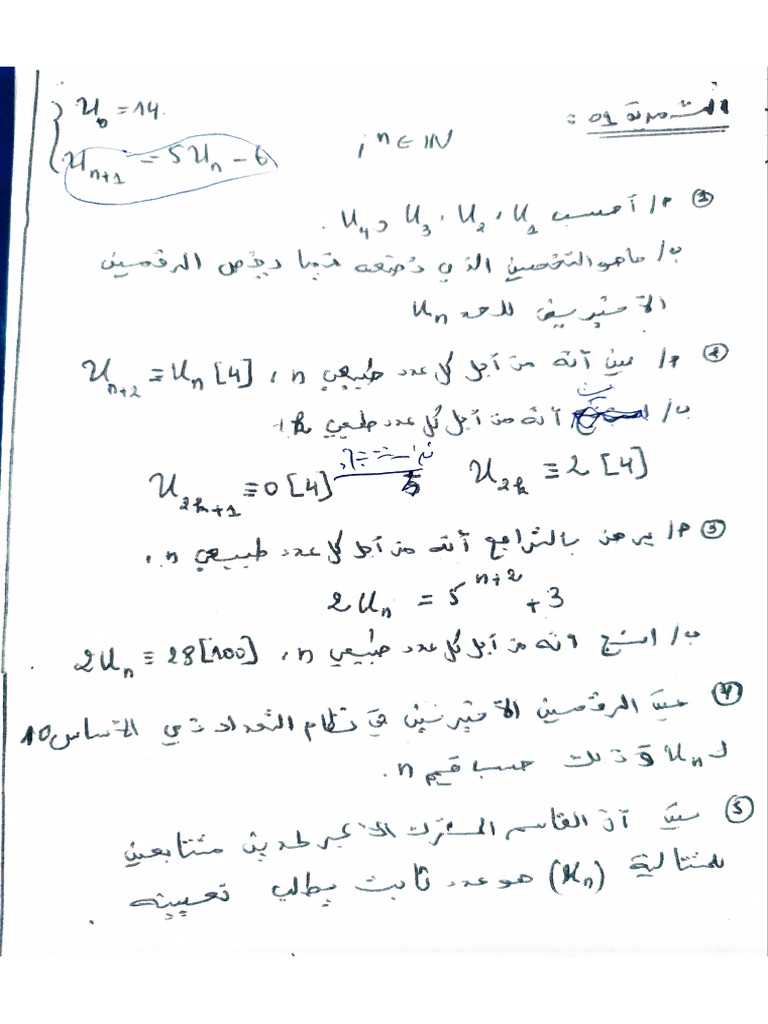 التمرين 01 :
{ U₀ = 14
Uₙ₊₁ = 5Uₙ − 6 , n ∈ IN
① أ/ أحسب U₁ ، U₂ ، U₃ و U₄ .
ب/ ماهو التخمين الذي نضعه فيما يخص الرقمين
الأخيرين للحد Uₙ
② أ/ بين أنه من أجل كل عدد طبيعي n ، Uₙ₊₂ ≡ Uₙ [4]
ب/ أنه من أجل كل عدد طبيعي k ،
U₂ₖ ≡ 2 [4] U₂ₖ₊₁ ≡ 0 [4]
③ أ/ برهن بالتراجع أنه من أجل كل عدد طبيعي n ،
2Uₙ = 5ⁿ⁺² + 3
ب/ استنتج أنه من أجل كل عدد طبيعي n ، 2Uₙ ≡ 28 [100] .
④ عين الرقمين الأخيرين في نظام التعداد ذي الأساس 10
لـ Uₙ و ذلك حسب قيم n .
⑤ بين أن القاسم المشترك الأكبر لحدين متتابعين
للمتتالية (Uₙ) هو عدد ثابت يطلب تعيينه .